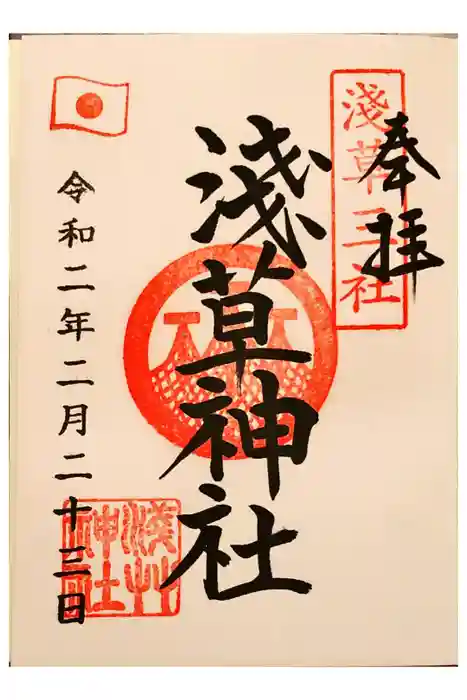 奉拝
淺草三社
淺草神社
令和二年二月二十三日
淺艸神社